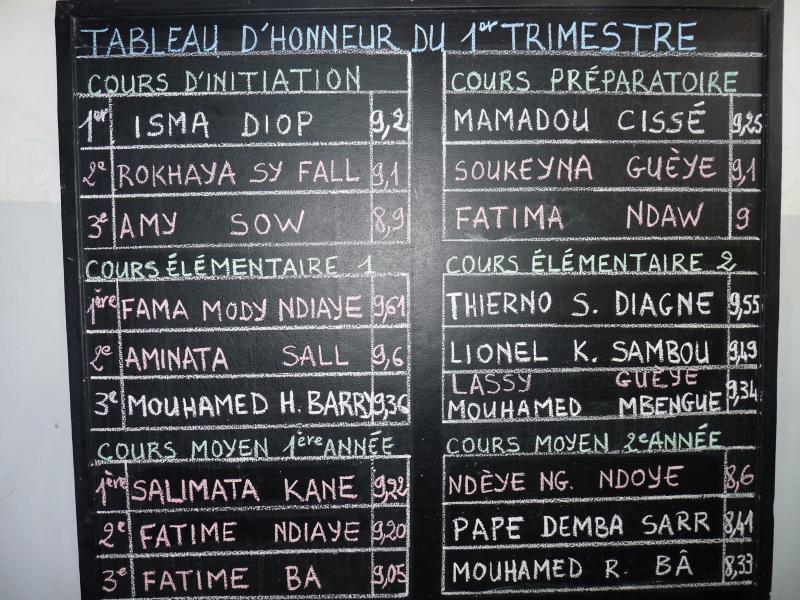 TABLEAU D'HONNEUR DU 1er TRIMESTRE
COURS D'INITIATION
1er ISMA DIOP 9,2
2e ROKHAYA SY FALL 9,1
3e AMY SOW 8,9
COURS PRÉPARATOIRE
MAMADOU CISSÉ 9,25
SOUKEYNA GUÈYE 9,1
FATIMA NDAW 9
COURS ÉLÉMENTAIRE 1
1ère FAMA MODY NDIAYE 9,61
2e AMINATA SALL 9,6
3e MOUHAMED H. BARRY 9,36
COURS ÉLÉMENTAIRE 2
THIERNO S. DIAGNE 9,55
LIONEL K. SAMBOU 9,49
LASSY GUÈYE
MOUHAMED MBENGUE 9,34
COURS MOYEN 1ère ANNÉE
1ère SALIMATA KANE 9,22
2e FATIME NDIAYE 9,20
3e FATIME BA 9,05
COURS MOYEN 2e ANNÉE
NDÈYE NG. NDOYE 8,6
PAPE DEMBA SARR 8,41
MOUHAMED R. BÂ 8,33